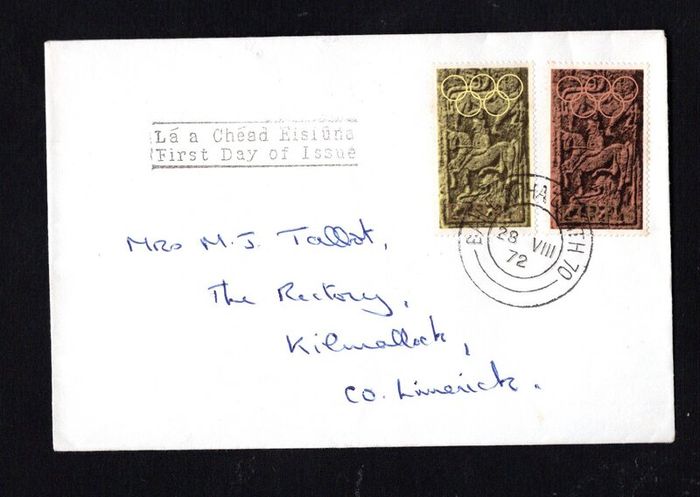 Lá a Chéad Eisiúna
First Day of Issue
28 VIII
72
Mrs M. J. Talbot,
The Rectory,
Kilmallock,
Co. Limerick.